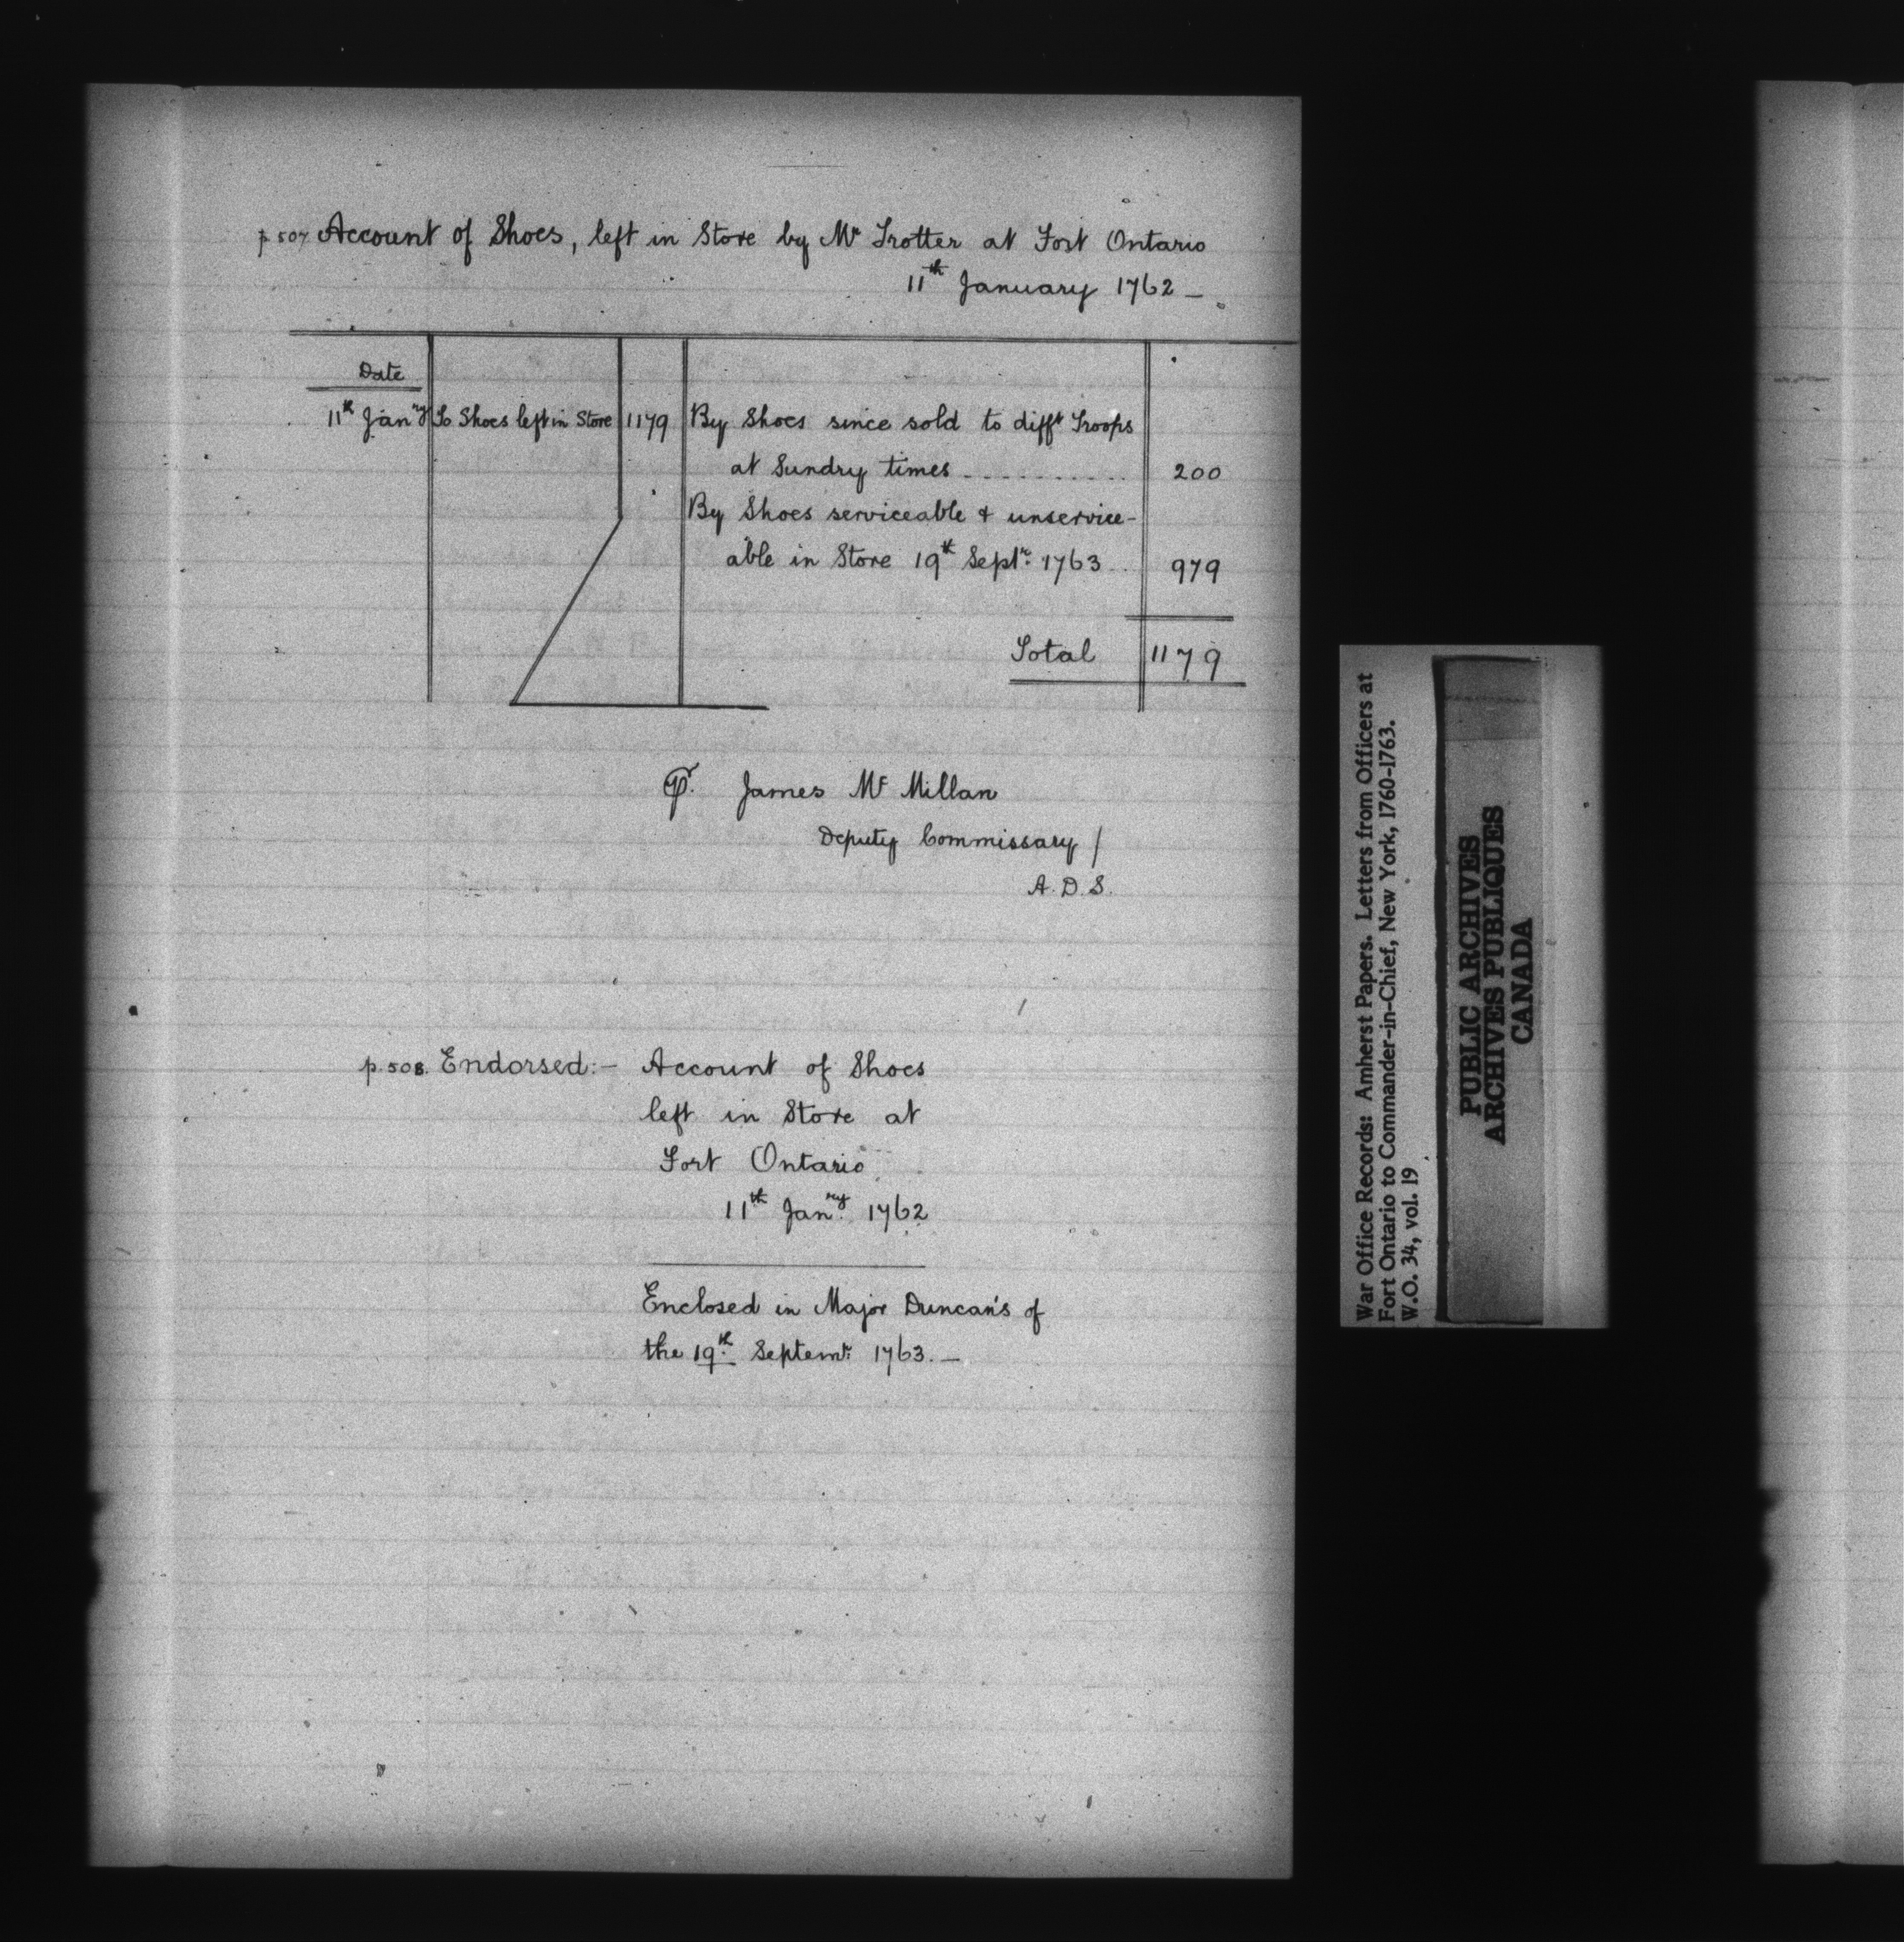 p 507 Account of Shoes, left in Store by Mr Trotter at Fort Ontario
11th January 1762 —
Date
11th Janry To Shoes left in Store 1179 By Shoes since sold to difft Troops
at Sundry times ........... 200
By Shoes serviceable & unservice-
able in Store 19th Septr. 1763 .. 979
Total 1179
James Mc Millan
Deputy Commissary /
A. D. S.
p. 508. Endorsed:— Account of Shoes
left in Store at
Fort Ontario
11th Janry. 1762
Enclosed in Major Duncan's of
the 19th. Septemr. 1763. —
War Office Records: Amherst Papers. Letters from Officers at
Fort Ontario to Commander-in-Chief, New York, 1760-1763.
W.O. 34, vol. 19
PUBLIC ARCHIVES
ARCHIVES PUBLIQUES
CANADA